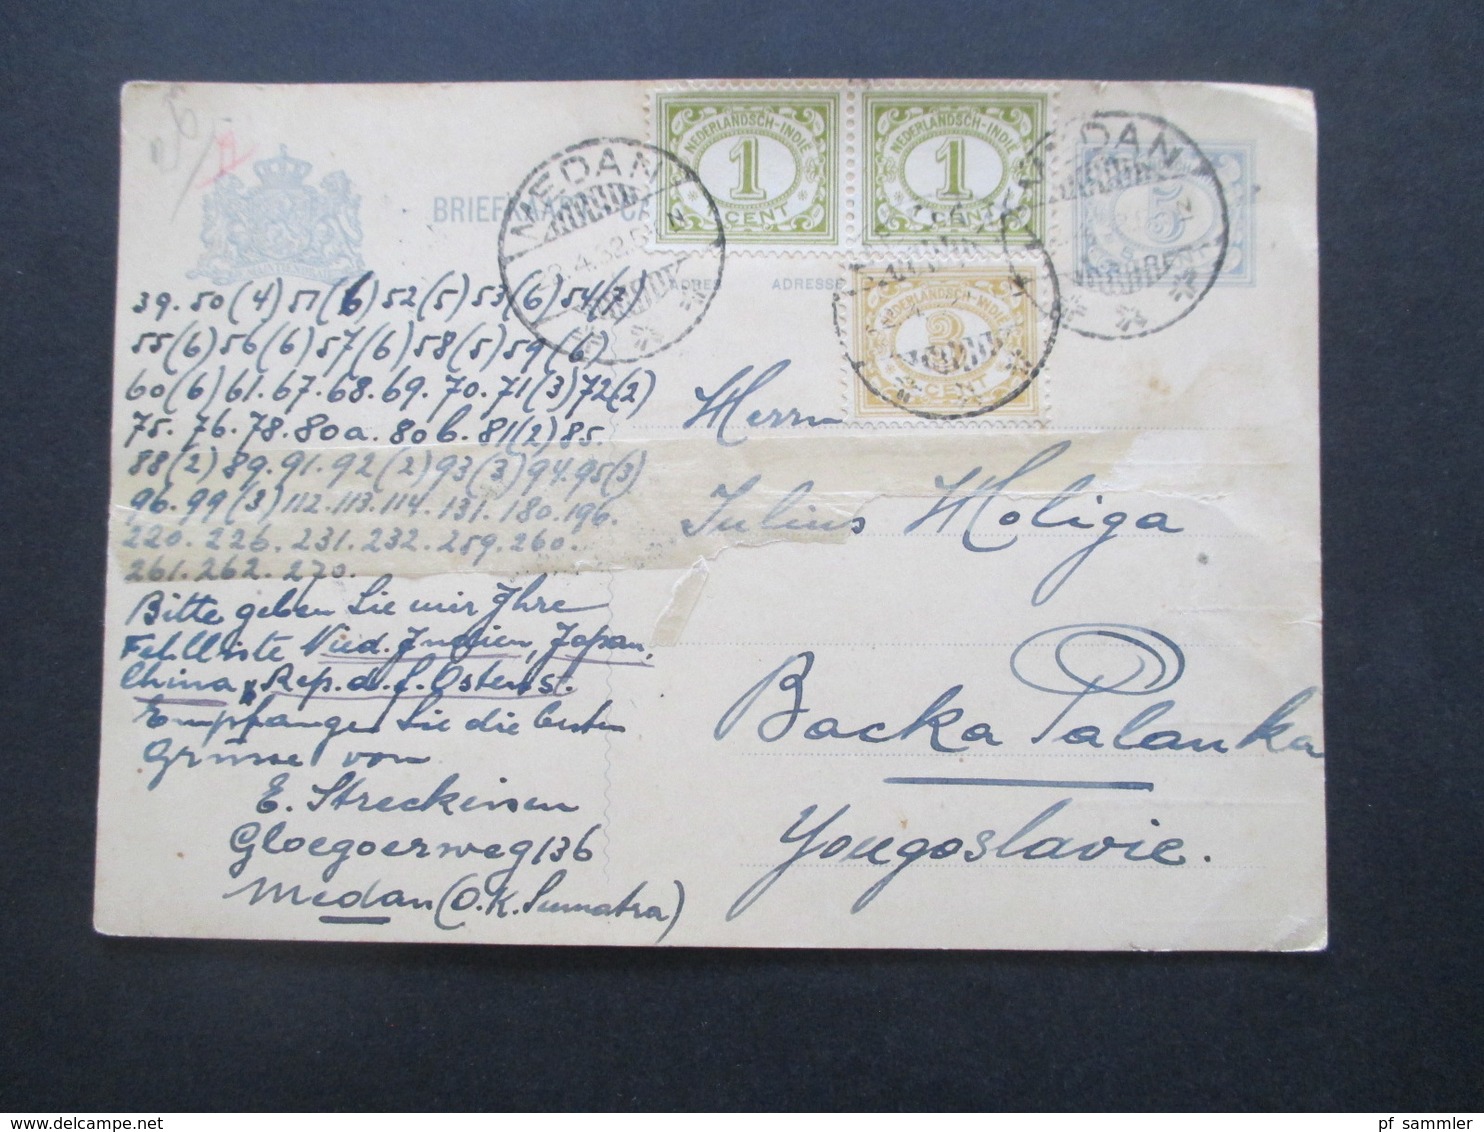 BRIEFKAART
ADRES ADRESSE
NEDERLANDSCH-INDIË
1
1 CENT
NEDERLANDSCH-INDIË
1
1 CENT
NEDERLANDSCH-INDIË
CENT
5
CENT
MEDAN
MEDAN
39. 50(4) 51(6) 52(5) 53(6) 54
55(6) 56(6) 57(6) 58(5) 59(6)
60(6) 61. 67. 68. 69. 70. 71(3) 72(2)
75. 76. 78. 80a. 80b. 81(2) 85.
88(2) 89. 91. 92(2) 93(3) 94. 95(3)
96. 99(3) 112. 113. 114. 131. 180. 196.
220. 226. 231. 232. 259. 260.
261. 262. 270.
Bitte geben Sie mir Ihre
Fehlliste Nied. Indien, Japan,
China, Rep. d. f. Osten
Empfangen Sie die besten
Grüsse von
E.
Gloegoerweg 136
Medan (O.K. Sumatra)
Herrn
Julius Moliga
Backa Palanka
Yougoslavie.
pf sammler